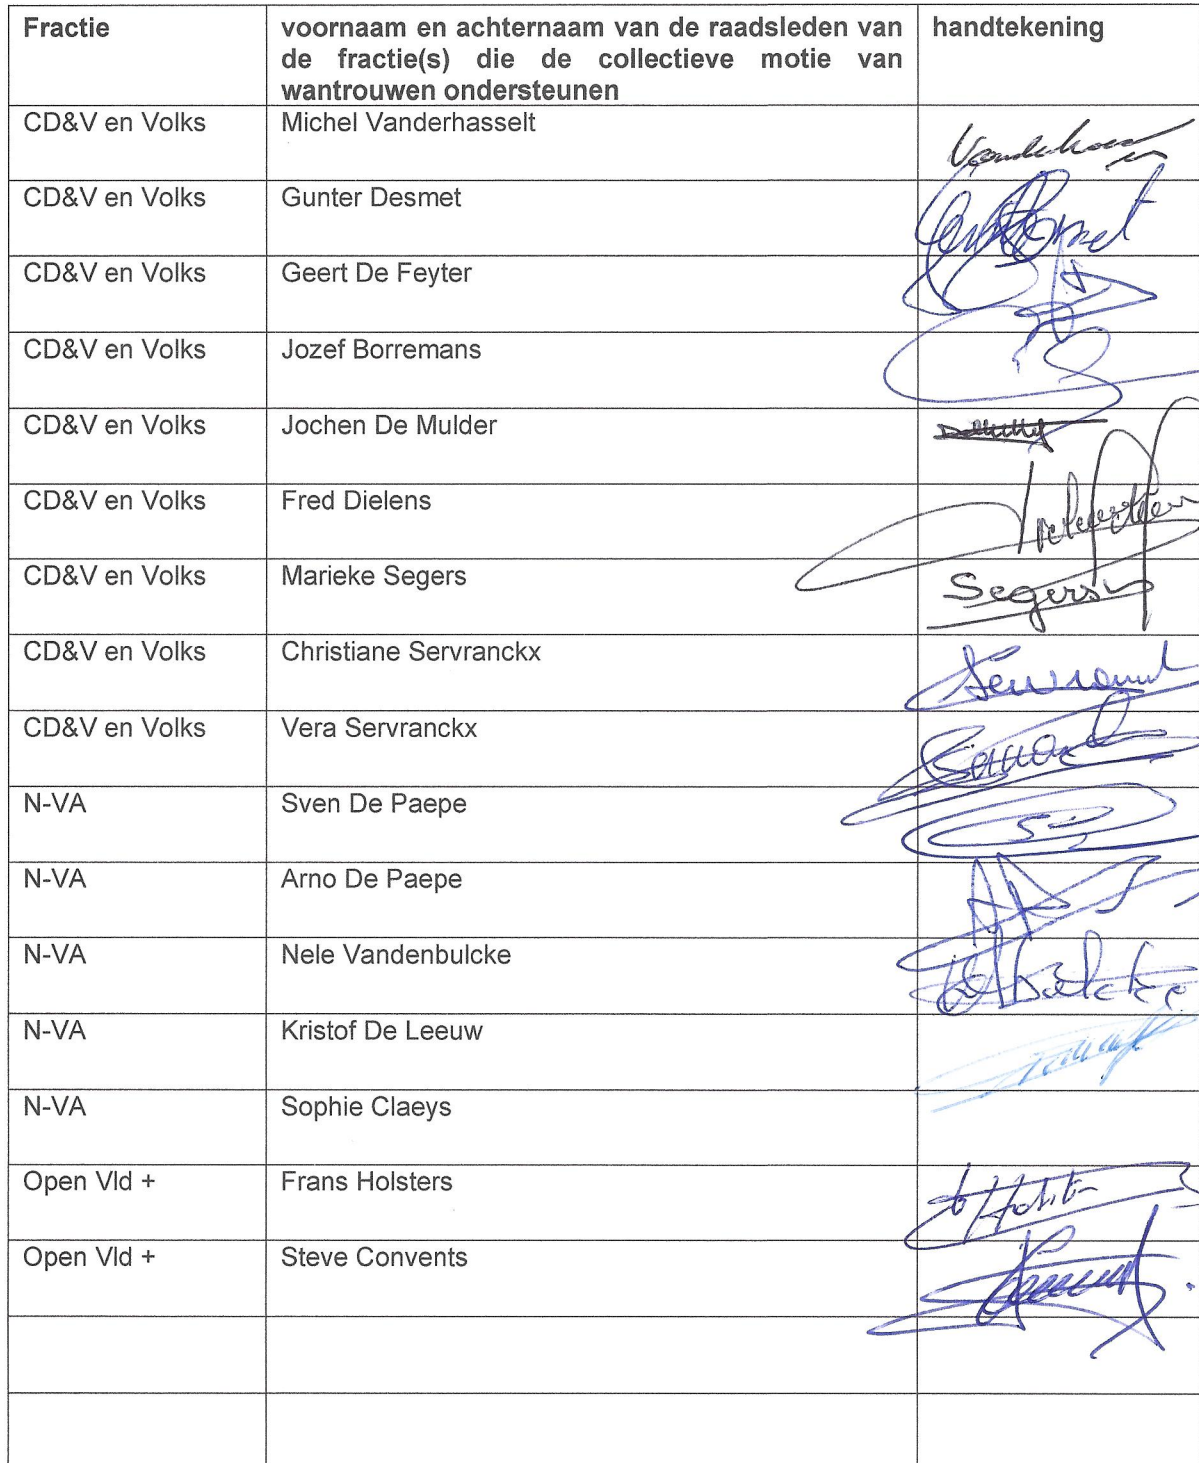 Fractie
voornaam en achternaam van de raadsleden van
de fractie(s) die de collectieve motie van
wantrouwen ondersteunen
handtekening
CD&V en Volks Michel Vanderhasselt
CD&V en Volks Gunter Desmet
CD&V en Volks Geert De Feyter
CD&V en Volks Jozef Borremans
CD&V en Volks Jochen De Mulder
CD&V en Volks Fred Dielens
CD&V en Volks Marieke Segers Segers
CD&V en Volks Christiane Servranckx
CD&V en Volks Vera Servranckx
N-VA Sven De Paepe
N-VA Arno De Paepe
N-VA Nele Vandenbulcke
N-VA Kristof De Leeuw
N-VA Sophie Claeys
Open Vld + Frans Holsters
Open Vld + Steve Convents